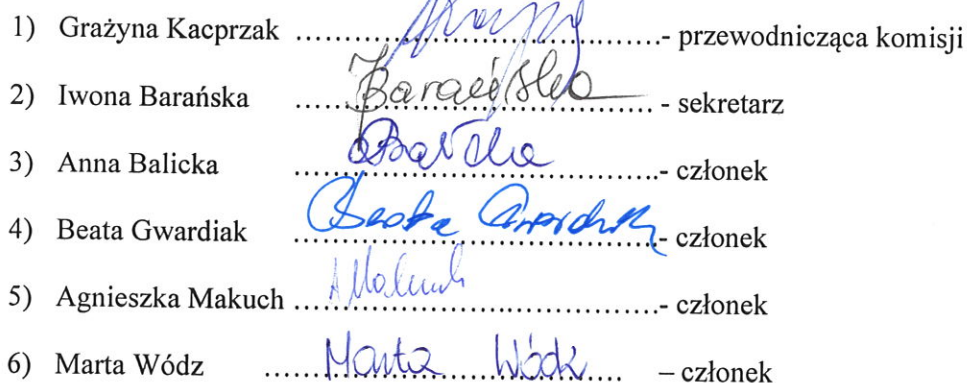 1) Grażyna Kacprzak ........................................- przewodnicząca komisji
2) Iwona Barańska ........Barańska........ - sekretarz
3) Anna Balicka ........................................- członek
4) Beata Gwardiak Beata Gwardiak - członek
5) Agnieszka Makuch ...AMakuch...........................- członek
6) Marta Wódz ....Marta Wódz.... – członek